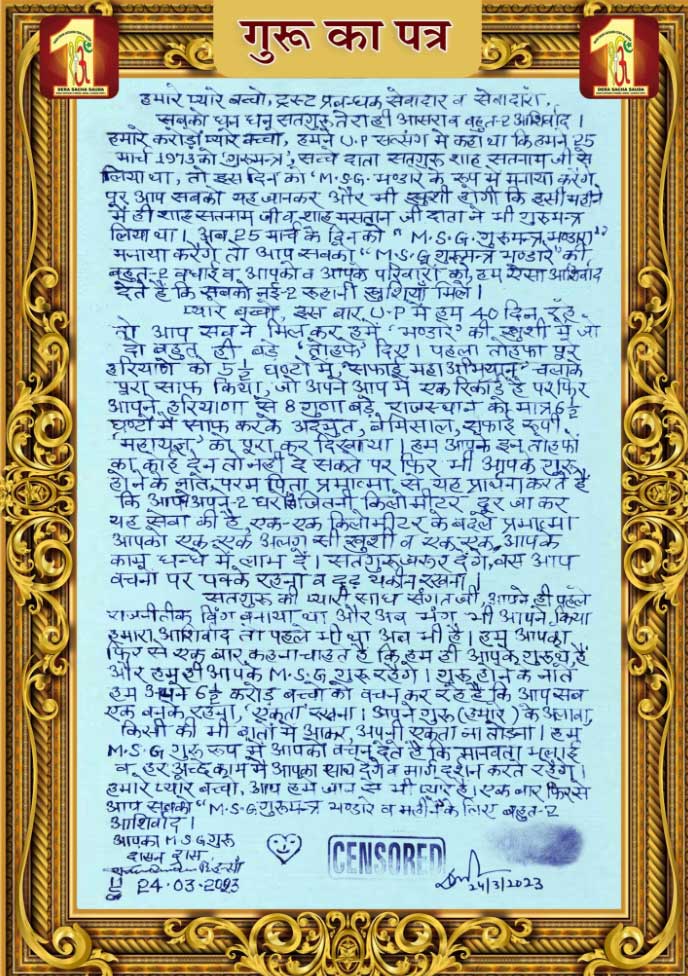 गुरू का पत्र
DERA SACHA SAUDA
DERA SACHA SAUDA
हमारे प्यारे बच्चो, ट्रस्ट प्रबन्धक सेवादार व सेवादारों,
सबको धन धन सतगुरू तेरा ही आसरा व बहुत-2 आशिर्वाद।
हमारे करोड़ों प्यारे बच्चो, हमने U.P सत्संग में कहा था कि हमने 25
मार्च 1973 को 'गुरूमन्त्र', सच्चे दाता सतगुरू शाह सतनाम जी से
लिया था, तो इस दिन को 'M.S.G. भण्डारे के रूप में मनाया करेंगे
पूर आप सबको यह जानकर और भी खुशी होगी कि इसी महीने
में ही शाह सतनाम जी व शाह मस्तान जी दाता ने भी गुरूमन्त्र
लिया था। अब 25 मार्च के दिन को "M.S.G. गुरूमन्त्र भण्डारा"
मनाया करेंगे तो आप सबको "M.S.G गुरूमन्त्र भण्डारे" की
बहुत-2 बधाई व आपको व आपके परिवारों को, हम ऐसा आशिर्वाद
देते हैं कि सबको नई-2 रूहानी खुशियाँ मिलें।
प्यारे बच्चो, इस बार U.P में हम 40 दिन रहे
तो आप सब ने मिलकर हमें 'भण्डारे' की खुशी में जो
दो बहुत ही बड़े 'तोहफे' दिए। पहला तोहफा पूरे
हरियाणे को 5½ घण्टों में 'सफाई महा अभियान' चलाके
पूरा साफ किया, जो अपने आप में एक रिकार्ड है पर फिर
आपने हरियाणा से 8 गुणा बड़े, राजस्थान को मात्र 6½
घण्टों में साफ करके अदभुत, बेमिसाल, सफाई रूपी
'महायज्ञ' को पूरा कर दिखाया। हम आपके इन तोहफों
का कोई देन तो नहीं दे सकते पर फिर भी आपके गुरू
होने के नाते, परम पिता प्रमात्मा, से यह प्रार्थना करते हैं
कि आप अपने-2 घरों जितनी किलोमीटर दूर जा कर
यह सेवा की है, एक-एक किलोमीटर के बदले प्रमात्मा
आपको एक-एक अलग सी खुशी व एक-एक, आपके
काम धन्धे में लाभ दें। सतगुरू जरूर देंगे, बस आप
वचनों पर पक्के रहना व दृढ़ यकीन रखना।
सतगुरू की प्यारी साध संगत जी, आपने ही पहले
राजनीतिक विंग बनाया था और अब भंग भी आपने किया
हमारा आशिर्वाद तो पहले भी था अब भी है। हम आपको
फिर से एक बार कहना चाहते हैं कि हम ही आपके गुरू थे, हैं
और हम ही आपके M.S.G गुरू रहेंगे। गुरू होने के नाते
हम अपने 6½ करोड़ बच्चों को वचन कर रहे हैं, कि आप सब
एक बनके रहना, 'एकता' रखना। अपने गुरू (हमारे) के अलावा,
किसी की भी बातों में आकर, अपनी एकता ना तोड़ना। हम
M.S.G गुरू रूप में आपको वचन देते हैं कि मानवता भलाई
व हर अच्छे काम में आपका साथ देंगे व मार्ग दर्शन करते रहेंगे।
हमारे प्यारे बच्चो, आप हमें जान से भी प्यारे हैं। एक बार फिर से
आप सबको "M.S.G गुरूमन्त्र भण्डारे व महीने के लिए बहुत-2
आशिर्वाद।
आपका M.S.G गुरू
दासन दास
24.03.2023
CENSORED
24/3/2023